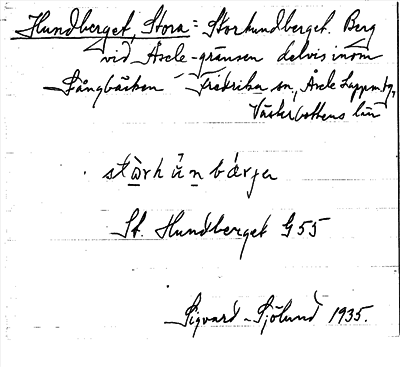 Hundberget, Stora = Storhundberget. Berg
vid Åsele-gränsen delvis inom
Långbäcken - Fredrika sn., Åsele Lappm.,
Västerbottens län
stàrh ùn bærjen
St. Hundberget G55
Sigvard Sjölund 1935.